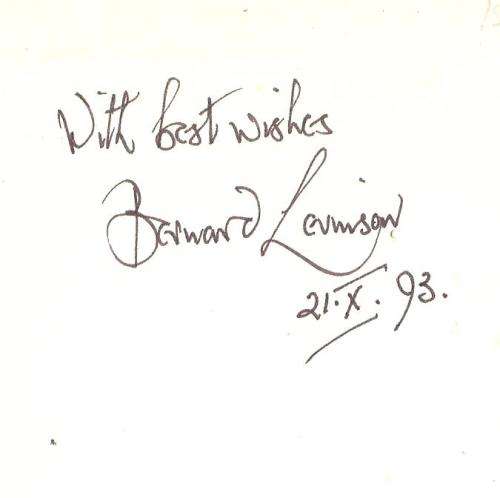 With best wishes
Bernard Levinson
21.X.93.